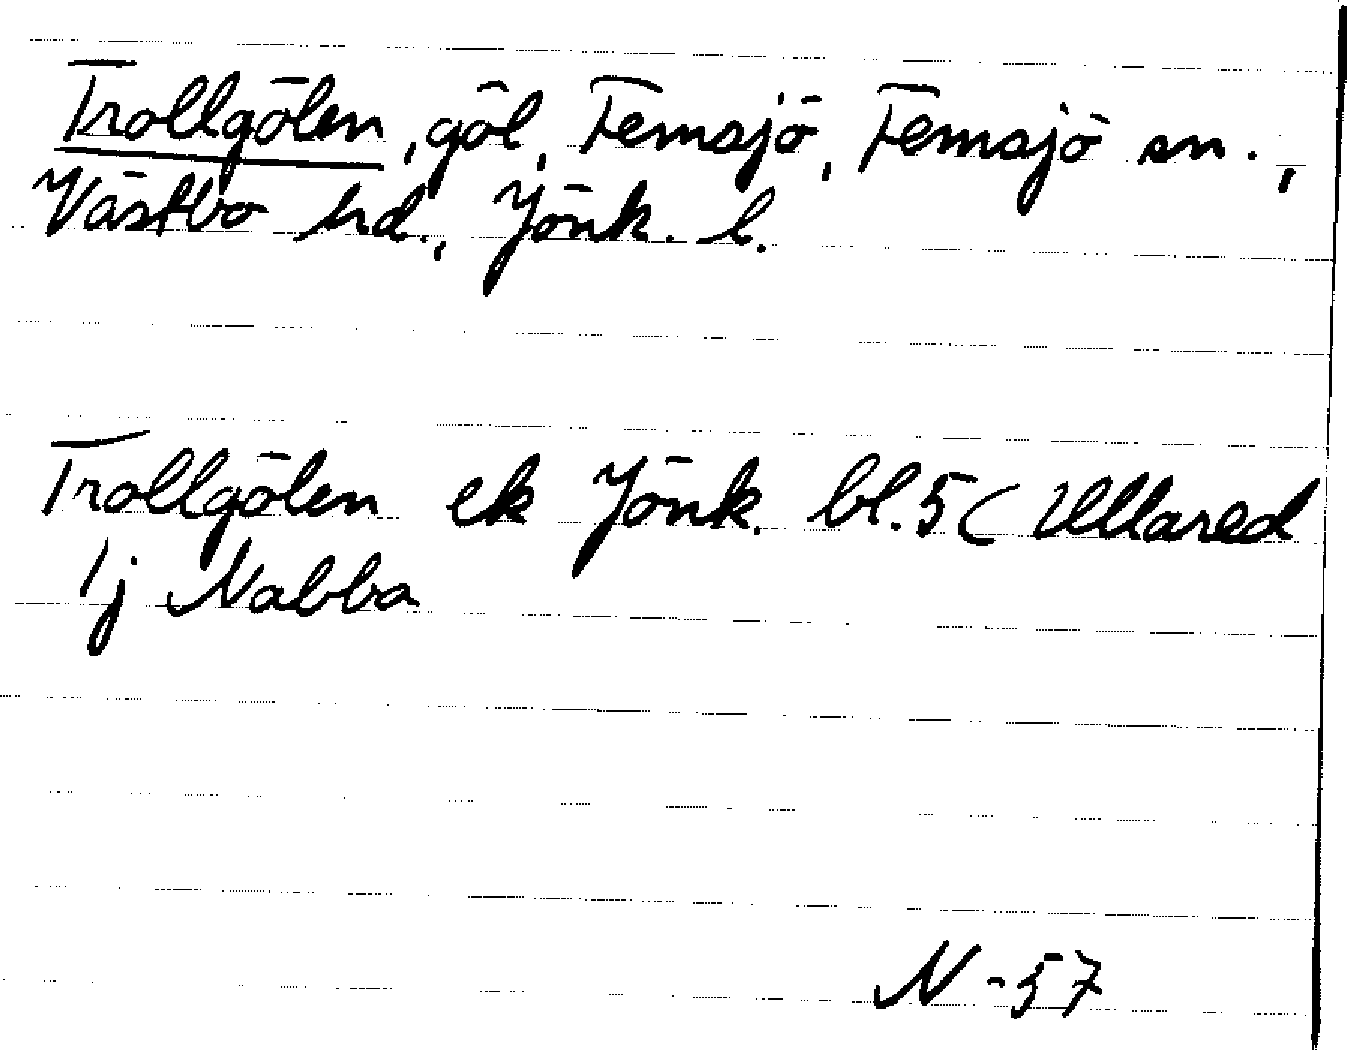 Trollgölen, göl, Femsjö, Femsjö sn.,
Västbo hd., Jönk. l.
Trollgölen ek Jönk. bl. 5 (Ullared
1j Nabba
N -57